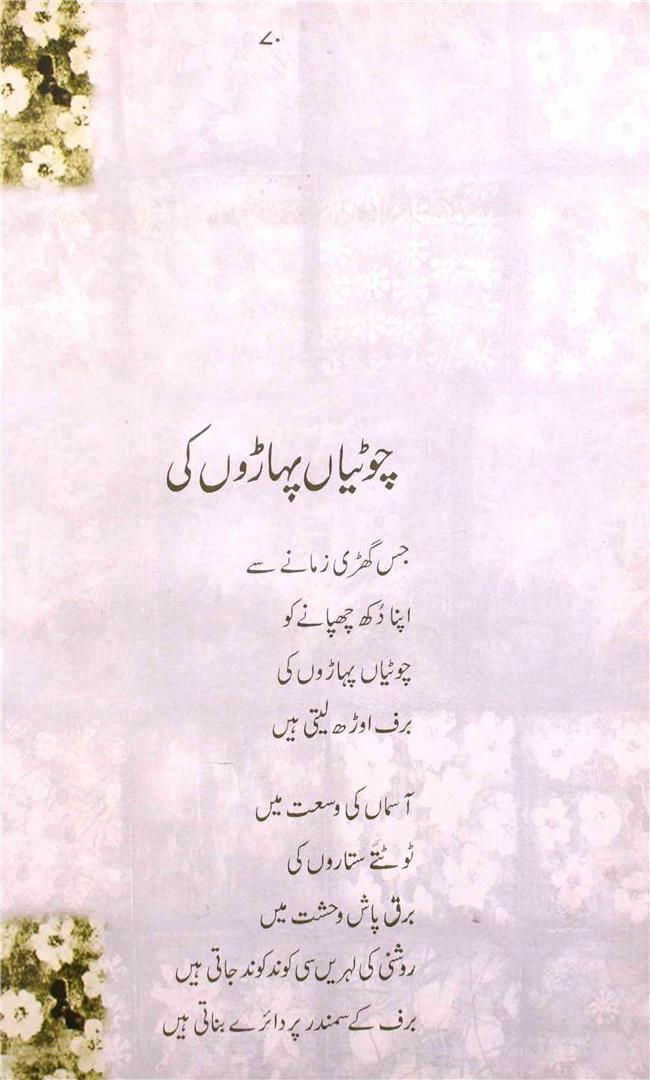 ۷۰
چوٹیاں پہاڑوں کی
جس گھڑی زمانے سے
اپنا دُکھ چھپانے کو
چوٹیاں پہاڑوں کی
برف اوڑھ لیتی ہیں
آسماں کی وسعت میں
ٹوٹتے ستاروں کی
برق پاش وحشت میں
روشنی کی لہریں سی کوند کوند جاتی ہیں
برف کے سمندر پر دائرے بناتی ہیں